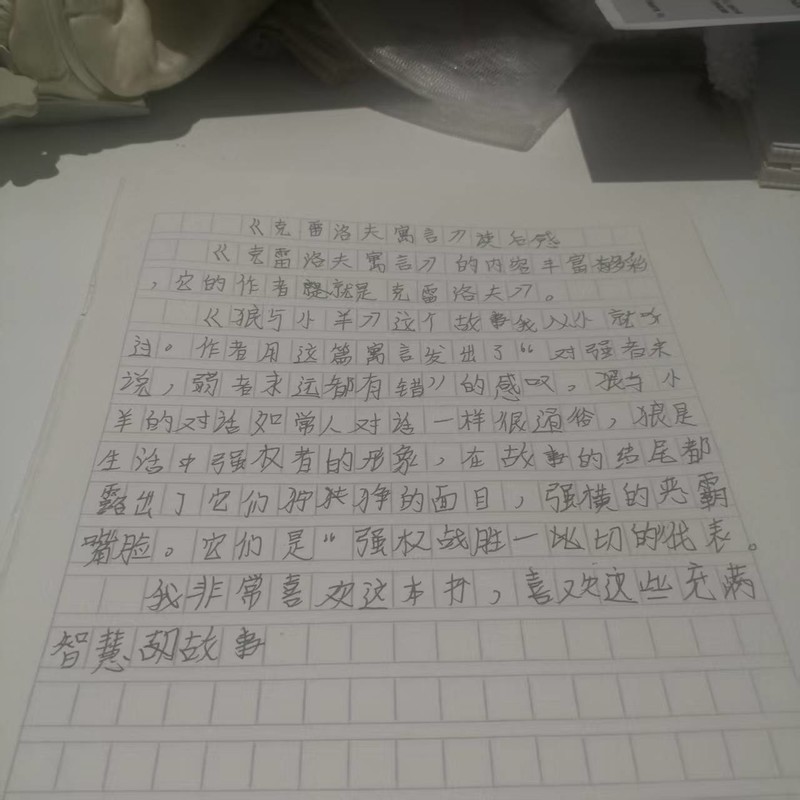 《克雷洛夫寓言》读后感
《克雷洛夫寓言》的内容丰富多彩
，它的作者就是克雷洛夫》。
《狼与小羊》这个故事我从小就听
过。作者用这篇寓言发出了“对强者来
说，弱者永远都有错”的感叹。狼与小
羊的对话如常人对话一样很通俗，狼是
生活中强权者的形象，在故事的结尾都
露出了它们狰狞的面目，强横的恶霸
嘴脸。它们是“强权战胜一切的”代表。
我非常喜欢这本书，喜欢这些充满
智慧的故事